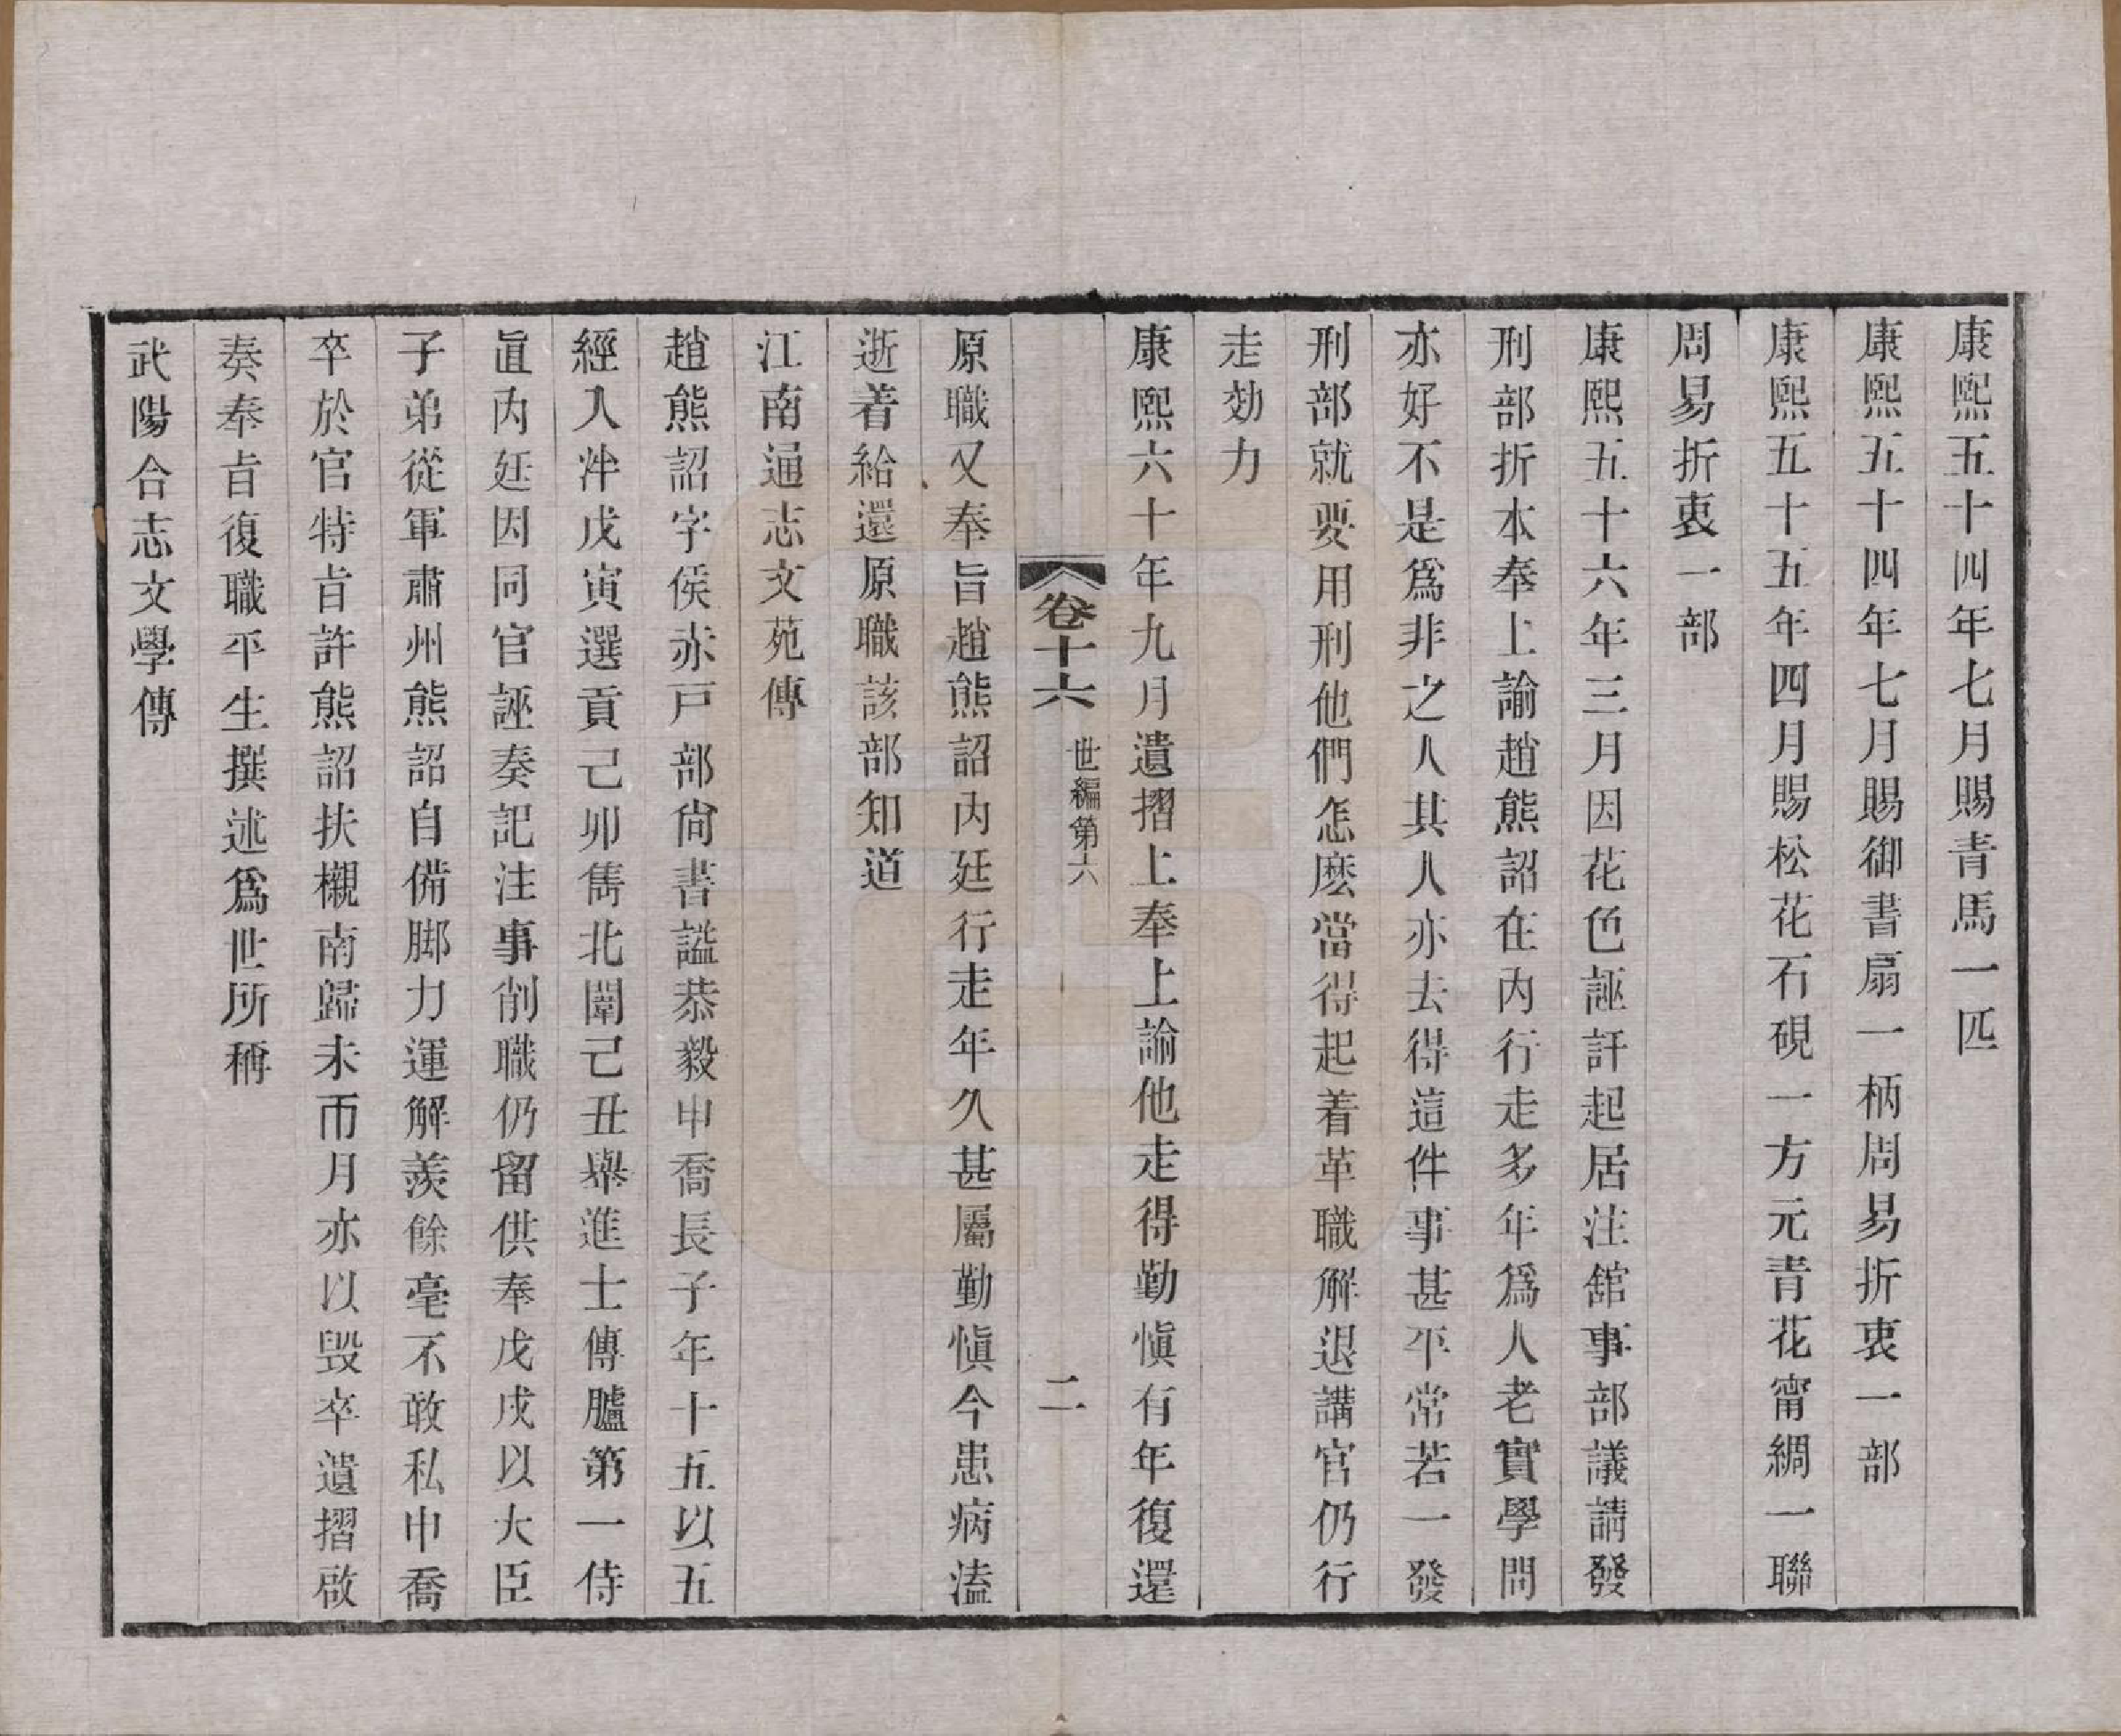 康熙五十四年七月賜青馬一匹
康熙五十四年七月賜御書扇一柄周易折衷一部
康熙五十五年四月賜松花石硯一方元青花甯綢一聯
周易折衷一部
康熙五十六年三月因花色誣訐起居注舘事部議請發
刑部折本奉上諭趙熊詔在內行走多年爲人老實學問
亦好不是爲非之人其人亦去得這件事甚平常若一發
刑部就要用刑他們怎麽當得起着革職解退講官仍行
走効力
康熙六十年九月遺摺上奉上諭他走得勤愼有年復還
卷十六 世編第六 二
原職又奉旨趙熊詔內廷行走年久甚屬勤愼今患病溘
逝着給還原職該部知道
江南通志文苑傳
趙熊詔字侯赤戸部尙書諡恭毅申喬長子年十五以五
經入泮戊寅選貢己卯雋北闈己丑舉進士傳臚第一侍
直內廷因同官誣奏記注事削職仍留供奉戊戌以大臣
子弟從軍肅州熊詔自備脚力運解羨餘毫不敢私申喬
卒於官特㫖許熊詔扶櫬南歸未帀月亦以毀卒遺摺啟
奏奉㫖復職平生撰述爲世所稱
武陽合志文學傳